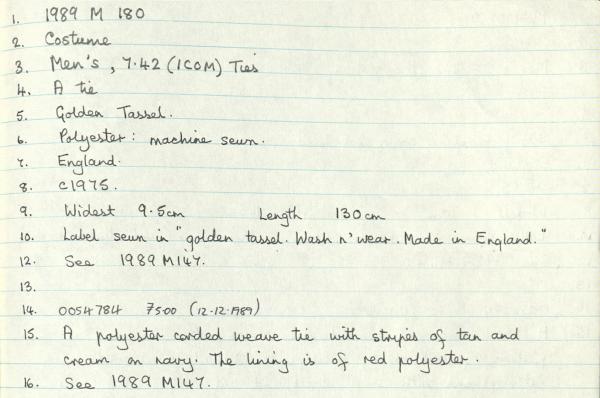 1. 1989 M 180
2. Costume
3. Men's, 7.42 (ICOM) Ties
4. A tie
5. Golden Tassel.
6. Polyester: machine sewn.
7. England.
8. c1975.
9. Widest 9.5cm Length 130cm
10. Label sewn in "golden tassel. Wash n' wear. Made in England."
12. See 1989 M147.
13.
14. 0054784 7500 (12.12.1989)
15. A polyester corded weave tie with stripes of tan and
cream on navy. The lining is of red polyester.
16. See 1989 M147.